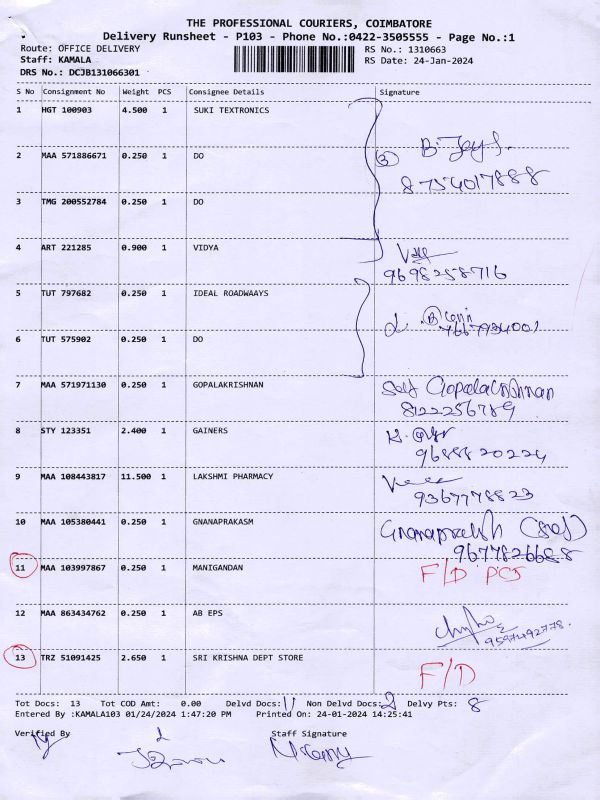 THE PROFESSIONAL COURIERS, COIMBATORE
Delivery Runsheet - P103 - Phone No.:0422-3505555 - Page No.:1
Route: OFFICE DELIVERY RS No.: 1310663
Staff: KAMALA RS Date: 24-Jan-2024
DRS No.: DCJB131066301
S No Consignment No Weight PCS Consignee Details Signature
1 HGT 100903 4.500 1 SUKI TEXTRONICS
2 MAA 571886671 0.250 1 DO ③ B.
8754017888
3 TMG 200552784 0.250 1 DO
4 ART 221285 0.900 1 VIDYA
9698258716
5 TUT 797682 0.250 1 IDEAL ROADWAAYS
6 TUT 575902 0.250 1 DO 2
7667934001
7 MAA 571971130 0.250 1 GOPALAKRISHNAN Self Gopalakrishnan
8122256789
8 STY 123351 2.400 1 GAINERS
9688820224
9 MAA 108443817 11.500 1 LAKSHMI PHARMACY
9367778823
10 MAA 105380441 0.250 1 GNANAPRAKASM Gnanaprakash (self)
9677826688
11 MAA 103997867 0.250 1 MANIGANDAN F/D PCS
12 MAA 863434762 0.250 1 AB EPS
9597492778.
13 TRZ 51091425 2.650 1 SRI KRISHNA DEPT STORE F/D
Tot Docs: 13 Tot COD Amt: 0.00 Delvd Docs: 11 Non Delvd Docs: 2 Delvy Pts: 8
Entered By :KAMALA103 01/24/2024 1:47:20 PM Printed On: 24-01-2024 14:25:41
Verified By Staff Signature